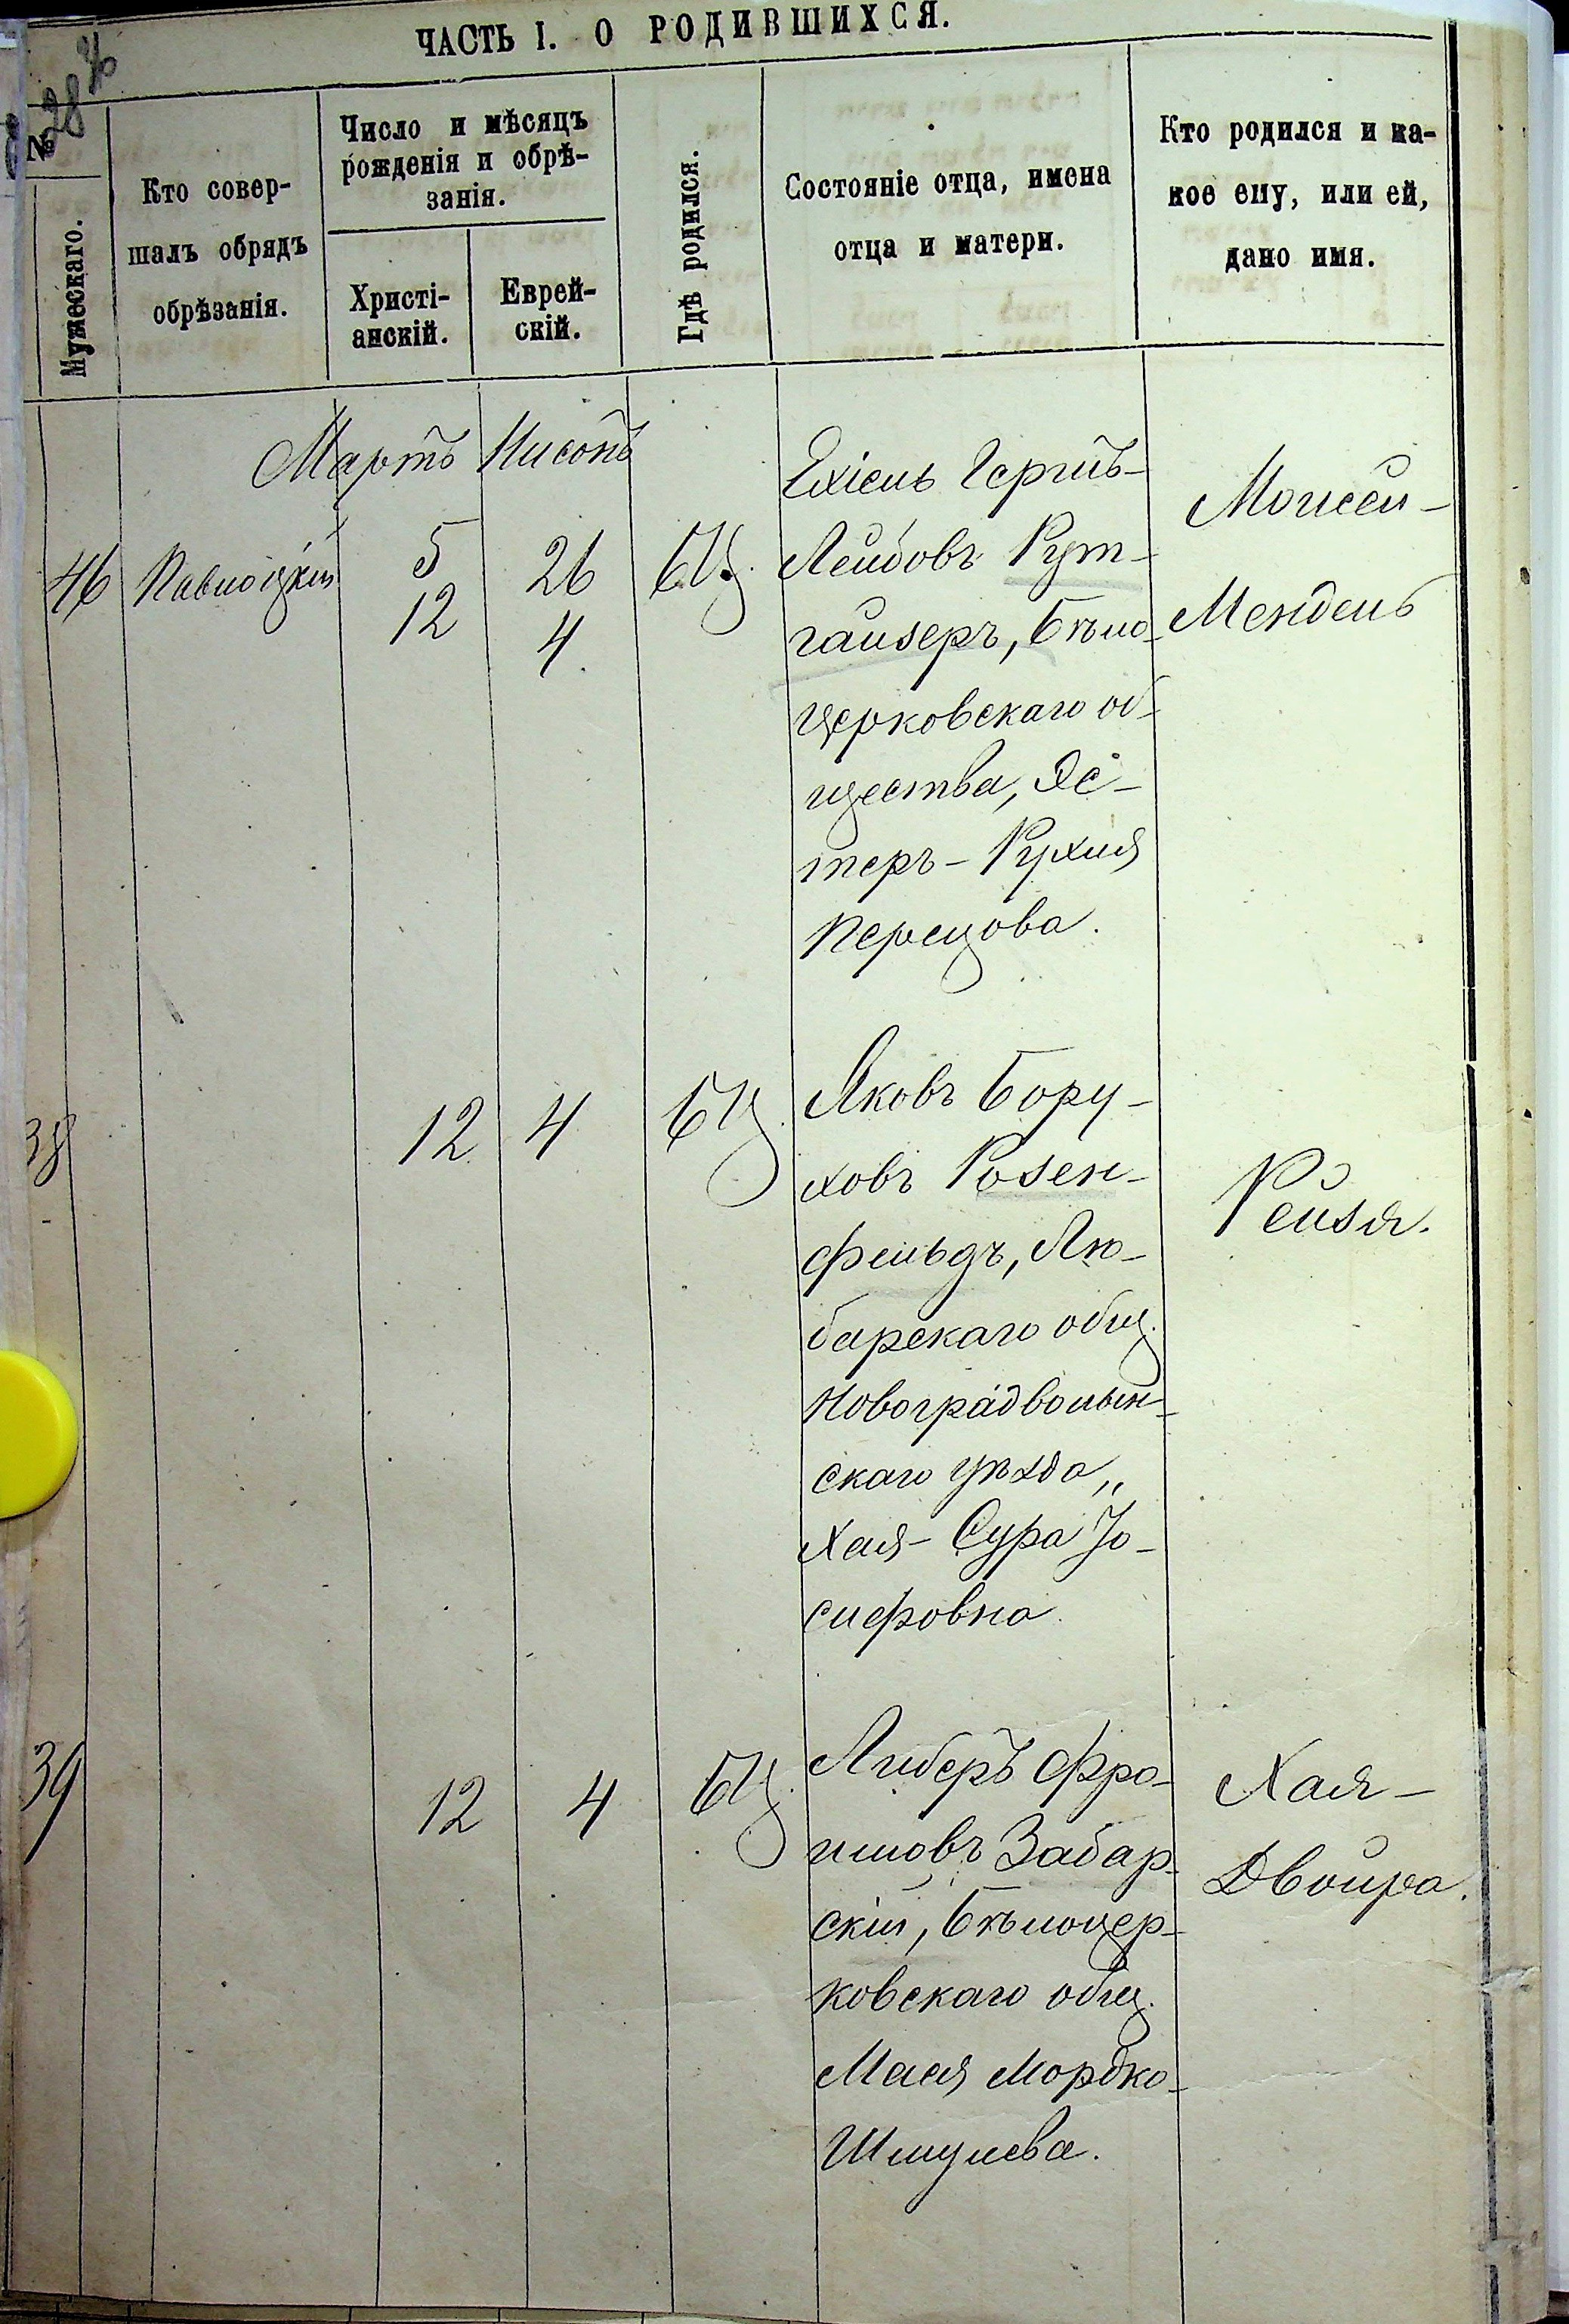 ЧАСТЬ I. О РОДИВШИХСЯ.
№
Мужескаго.
Кто совер-
шалъ обрядъ
обрѣзанія.
Число и мѣсяцъ
рожденія и обрѣ-
занія.
Христі-
анскій.
Еврей-
скій.
Гдѣ родился.
Состояніе отца, имена
отца и матери.
Кто родился и ка-
кое ему, или ей,
дано имя.
Мартъ Нисонъ
46
5
12
26
4.
БЦ.
Ехіель Гершъ-
Лейбовъ Рут-
гайзеръ, Бѣло-
церковскаго об-
щества, Эс-
теръ-Рухля
Перецова.
Моисей-
Мендель
38
12
4
БЦ.
Яковъ Бору-
ховъ Розен-
фельдъ, Лю-
барскаго общ.
Новоградволын-
скаго уѣзда,
Хая-Сура Іо-
сифовна.
Рейзя.
39
12
4
БЦ.
Либеръ Фро-
имовъ Забар-
скій, Бѣлоцер-
ковскаго общ.
Мася Мордко-
Шмулева.
Хая-
Двойра.